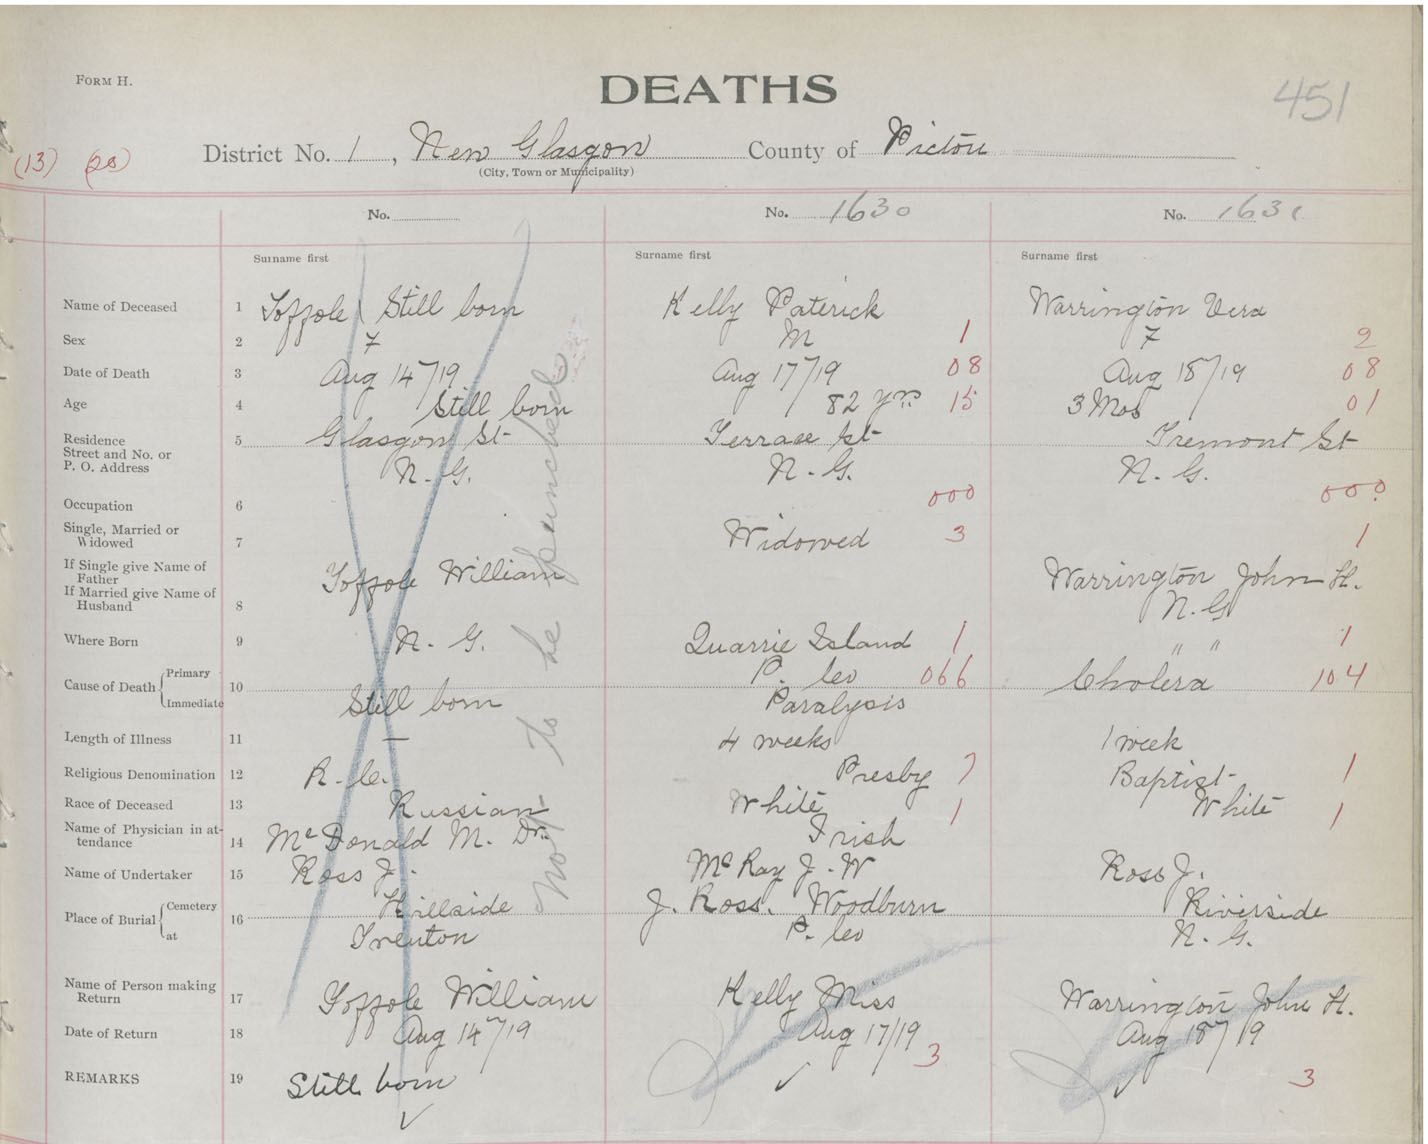 FORM H.
DEATHS
451
(13) (20)
District No. 1, New Glasgow County of Pictou
(City, Town or Municipality)
No. No. 1630 No. 1631
Surname first Surname first Surname first
Name of Deceased 1 Still born Kelly Paterick Warrington Vera
Sex 2 F M 1 F 2
Date of Death 3 Aug 14/19 Aug 17/19 08 Aug 18/19 08
Age 4 Still born 82 yrs 15 3 Mos 01
Residence Street and No. or P. O. Address 5 Glasgow St Terrace St Tremont St
N. G. N. G. N. G.
Occupation 6 000 000
Single, Married or Widowed 7 Widowed 3 1
If Single give Name of Father
If Married give Name of Husband 8 William Warrington John H.
N. G
Where Born 9 N. G. Quarrie Island 1 " " 1
Cause of Death Primary 10 P. Co 066 Cholera 104
Immediate Still born Paralysis
Length of Illness 11 — 4 weeks 1 week
Religious Denomination 12 R. C. Presby 7 Baptist 1
Race of Deceased 13 Russian White 1 White 1
Irish
Name of Physician in attendance 14 McDonald M. Dr.
Name of Undertaker 15 Ross J. McKay J. W Ross J.
Place of Burial Cemetery 16 Hillside J. Ross. Woodburn Riverside
at Trenton P. Co N. G.
Name of Person making Return 17 William Kelly Miss Warrington John H.
Date of Return 18 Aug 14/19 Aug 17/19 3 Aug 18/19
REMARKS 19 Still born 3
Not to be punched